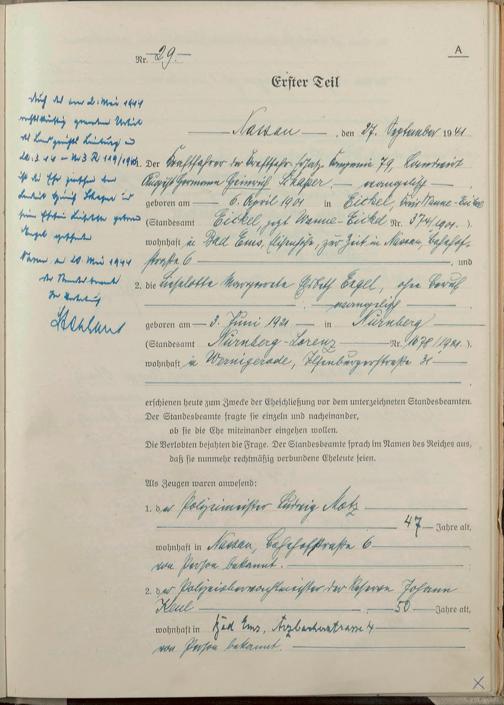 Nr. 29.
A
Erster Teil
Nassau, den 27. September 1941
durch das am 2. Mai 1944
rechtskräftig gewordene Urteil
des Landgerichts
ist die Ehe zwischen dem
und
geschieden
Nassau, am 20. Mai 1944
Der Standesbeamte
1. Der Kraftfahrer der Kraftfahr Ersatz Kompanie 79, Landwirt
August Hermann Heinrich
evangelisch
geboren am 6. April 1901 in Eickel, Kreis Wanne-Eickel
(Standesamt Eickel jetzt Wanne-Eickel Nr. 374/1901.)
wohnhaft in Bad Ems, zur Zeit in Nassau, Bahnhof-
straße 6, und
2. die Lieselotte Margarete Edith Engel, ohne Beruf
evangelisch
geboren am 3. Juni 1921 in Nürnberg
(Standesamt Nürnberg-Lorenz Nr. 1678/1921.)
wohnhaft in Wernigerode, Ilsenburgerstraße 31
erschienen heute zum Zwecke der Eheschließung vor dem unterzeichneten Standesbeamten.
Der Standesbeamte fragte sie einzeln und nacheinander,
ob sie die Ehe miteinander eingehen wollen.
Die Verlobten bejahten die Frage. Der Standesbeamte sprach im Namen des Reiches aus,
daß sie nunmehr rechtmäßig verbundene Eheleute seien.
Als Zeugen waren anwesend:
1. der Polizeimeister Ludwig Motz
47 Jahre alt,
wohnhaft in Nassau, Bahnhofstraße 6
von Person bekannt.
2. der Polizeioberwachtmeister der Reserve Johann
Keul 50 Jahre alt,
wohnhaft in Bad Ems, Arzbacherstrasse 4
von Person bekannt.